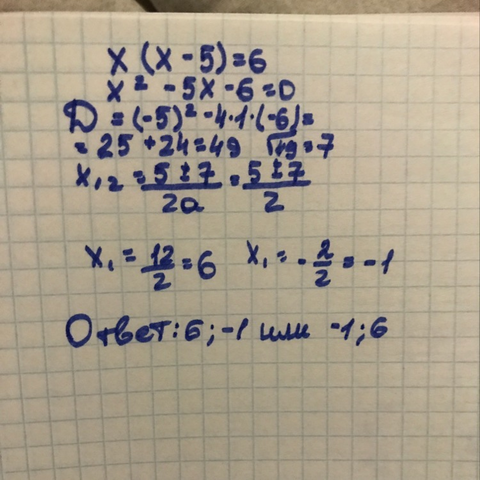 x (x - 5) = 6
x² - 5x - 6 = 0
D = (-5)² - 4·1·(-6) =
= 25 + 24 = 49 √49 = 7
x₁,₂ = (5 ± 7)/2a = (5 ± 7)/2
x₁ = 12/2 = 6 x₁ = -2/2 = -1
Ответ: 6; -1 или -1; 6